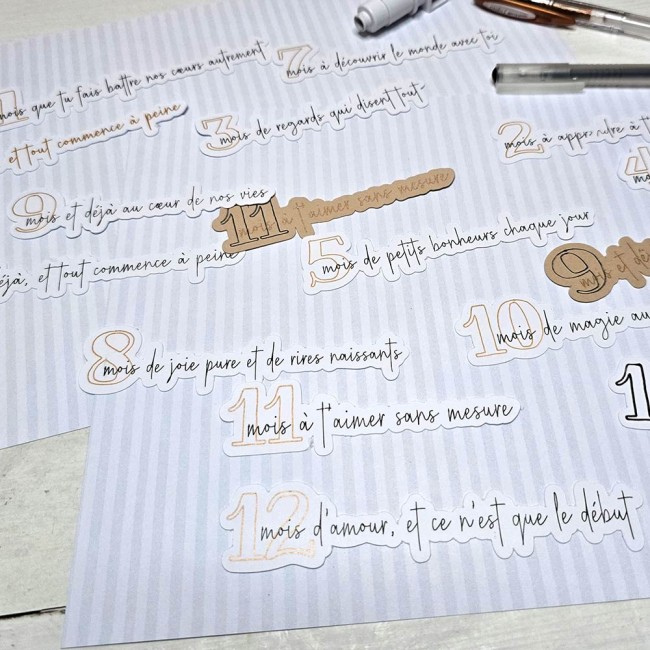 7 mois à découvrir le monde avec toi
mois que tu fais battre nos cœurs autrement
et tout commence à peine
3 mois de regards qui disent tout
2 mois à apprendre à
4
9 mois et déjà au cœur de nos vies
11 mois à t'aimer sans mesure
5 mois de petits bonheurs chaque jour
déjà, et tout commence à peine
9 mois et
10 mois de magie au
8 mois de joie pure et de rires naissants
11 mois à t'aimer sans mesure
12 mois d'amour, et ce n'est que le début